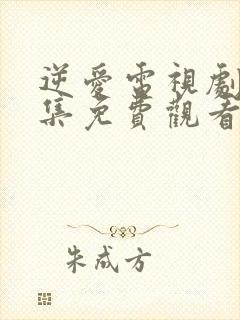 逆愛電視劇
集免費觀看
朱成方